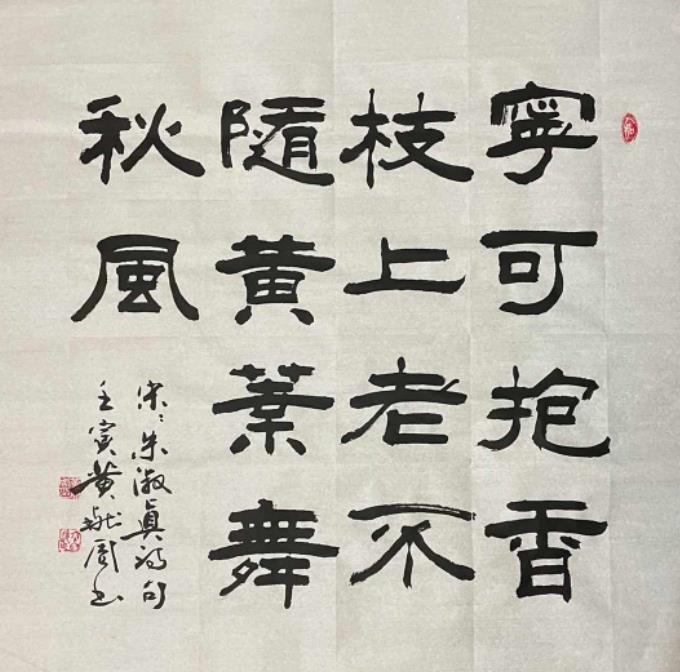 寧可抱香
枝上老不
隨黄葉舞
秋風
宋朱淑真詩句
壬寅黄献周书